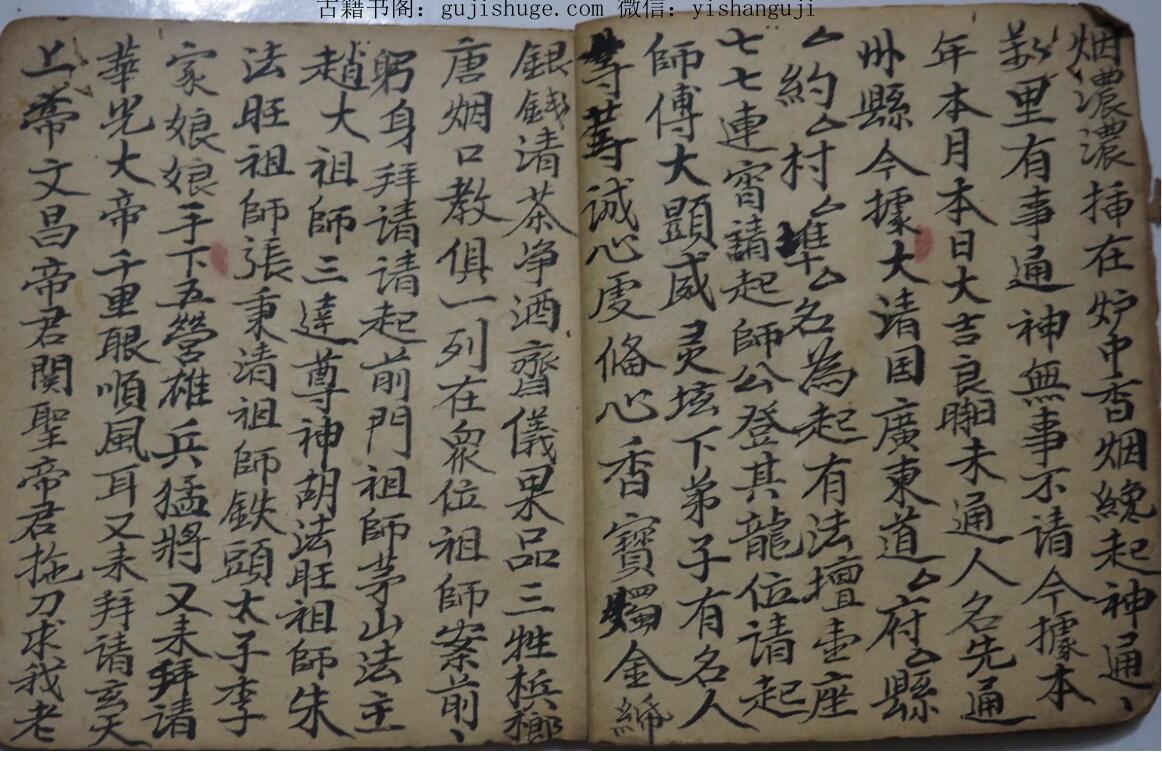 古籍书阁：gujishuge.com 微信：yishanguji
烟濃濃揷在炉中香烟綘起神通、
萪里有事通神無事不请今據本
年本月本日大吉良朝未通人名先通
州縣今據大清国廣東道△府△縣
△約△村△準△名為起有法壇壹座
七七連宵請起師公登其龍位请起
師傅大顕威灵坛下弟子有名人
等誠心虔俻心香寶燭金綈
銀錢清茶净酒齋儀果品三牲槟榔
唐烟口教俱一列在衆位祖師案前、
躬身拜请请起前門祖師茅山法主
趙大祖師三達尊神胡法旺祖師朱
法旺祖師張秉清祖師鉄頭太子李
家娘娘手下五營雄兵猛將又来拜请
華光大帝千里眼順風耳又来拜请玄天
上帝文昌帝君関聖帝君拖刀求我老